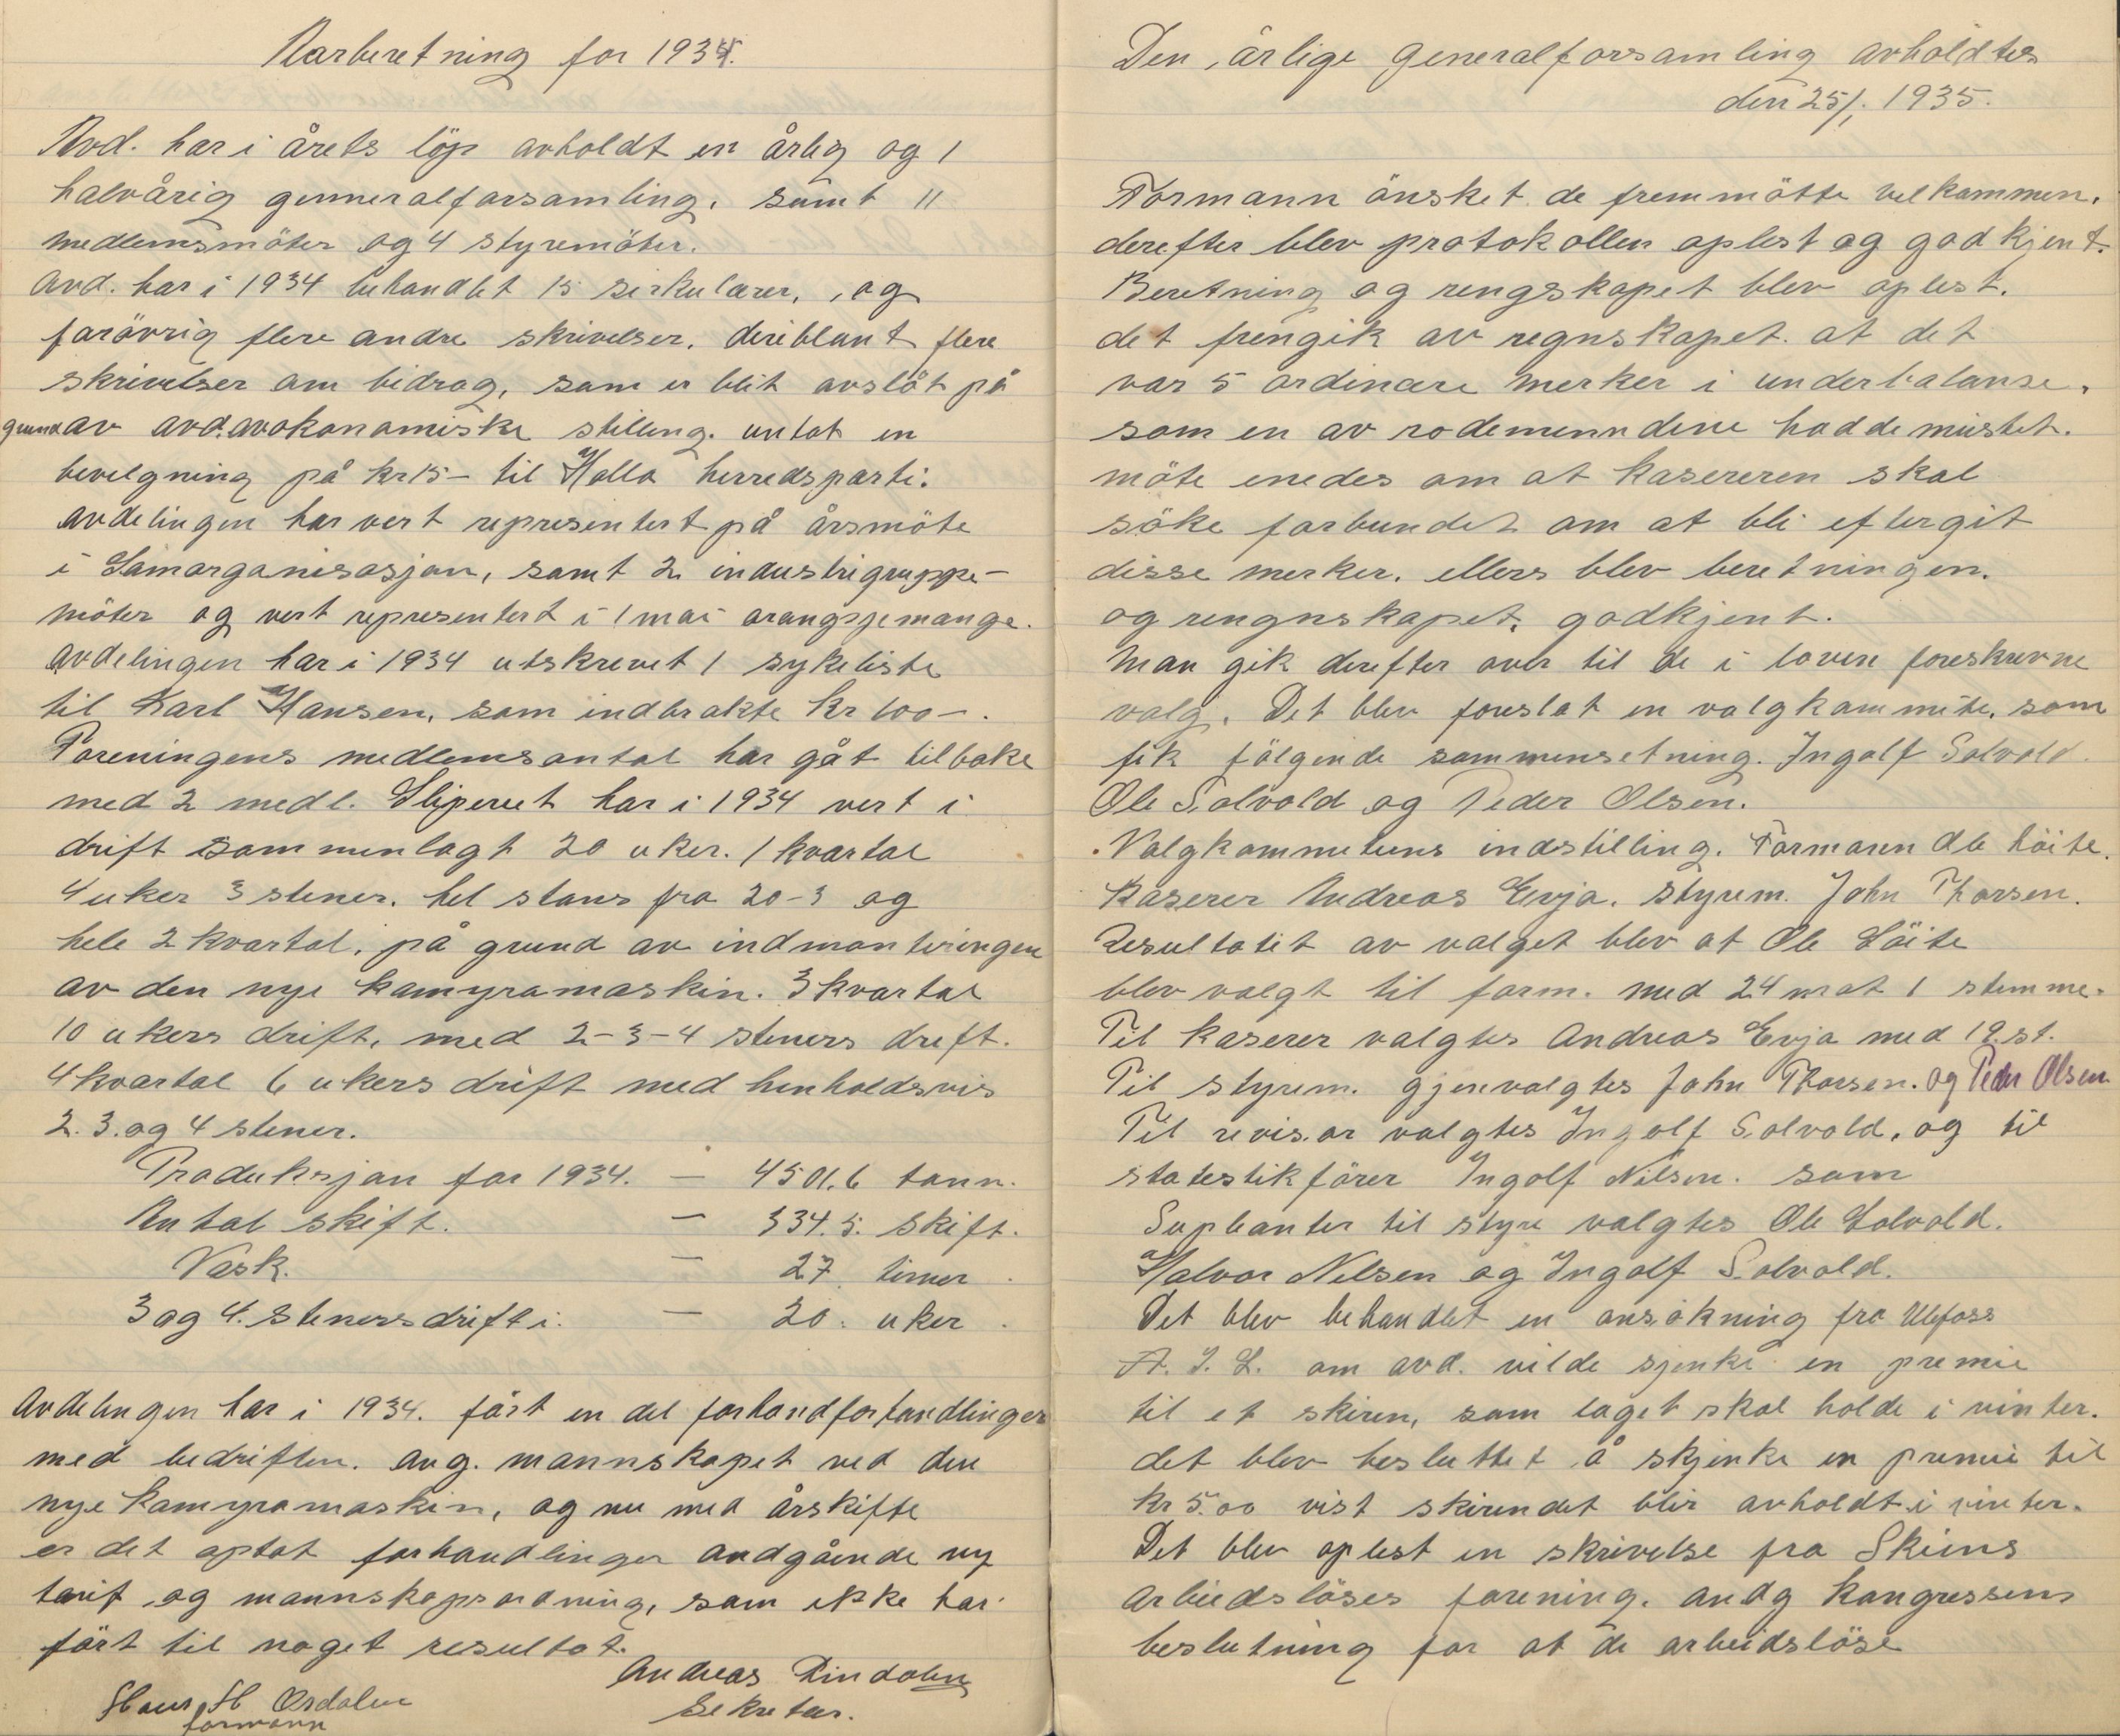 Aarberetning for 1934.
Avd. har i årets löp avholdt en årlig og 1
halvårig genneralforsamling. samt 11
medlemsmöter og 4 styremöter.
Avd. har i 1934 behandlet 15 serkulærer, og
forövrig flere andre skrivelser. deriblant flere
skrivelser om bidrag, som er blit avslöt på
grund av avd. avokonomiske stilling. untat en
bevilgning på kr 15- til Holla herredsparti.
avdelingen har vert representert på årsmöte
i Samorganisasjon, samt 2 industrigruppe-
möter og vert representert i 1 mai arangsjemange.
avdelingen har i 1934 utskrevet 1 sykeliste
til Karl Hansen, som indbrakte kr 100-.
Foreningens medlemsantal har gåt tilbake
med 2 medl. Sliperiet har i 1934 vert i
drift sammenlagt 20 uker. 1 kvartal
4 uker 3 stener. hel stans fra 20-3 og
hele 2 kvartal. på grund av indmonteringen
av den nye kamyramaskin. 3 kvartal
10 ukers drift. med 2-3-4 steners dreft.
4 kvartal 6 ukers drift med henholdsvis
2. 3. og 4 stener.
Produksjon for 1934. — 4501.6 tonn.
Antal skift. — 334.5. skift.
Vask. — 27 timer.
3 og 4. stenersdrift i. — 20. uker.
Avdelingen har i 1934. fört en del forhandforhandlinger
med bedriften. ang. mannskapet ved den
nye kamyramaskin, og nu med årskifte
er det optat forhandlinger andgående ny
tarif og mannskapsordning, som ikke har
fört til noget resultat.
Andreas Rindalen
Sekretær.
Hans H Ørdalen
formann
Den årlige generalforsamling avholdtes
den 25/1. 1935.
Formann önsket de fremmötte velkommen.
derefter blev protokollen oplest og godkjent.
Beretning og rengskapet blev oplest.
det frengik av regnskapet. at det
var 5 ordinære merker i underbalanse.
som en av rodemenndene hadde mistet.
möte enedes om at kasereren skal
söke forbundet om at bli eftergit
disse merker. ellers blev beretningen.
og rengnskapet. godkjent.
Man gik derefter over til de i loven foreskrevne
valg. Det blev foreslat en valgkommite. som
fik fölgende sammensetning. Ingolf Solvold.
Ole Solvold og Peder Olsen.
Valgkommetens indstilling. Formann Ole Löite.
Kaserer Andreas Evja. Styrem. John Thorsen.
Resultatet av valget blev at Ole Löite
blev valgt til form. med 24 mot 1 stemme.
Til kaserer valgtes Andreas Evja med 19. st.
Til styrem. gjenvalgtes John Thorsen. og Peder Olsen
Til revisor valgtes Ingolf Solvold. og til
statestikförer Ingolf Nilsen. som
Supleanter til styre valgtes Ole Solvold.
Halvor Nilsen og Ingolf Solvold.
Det blev behandlet en ansökning fra Ulefoss
A. I. L. om avd. vilde sjenke en premie
til et skiren, som laget skal holde i vinter.
det blev besluttet å skjenke en premie til
kr 5.00 vist skirendet blir avholdt i vinter.
Det blev oplest en skrivelse fra Skiens
arbeidslöses forening. andg kongressens
beslutning for at de arbeidslöse